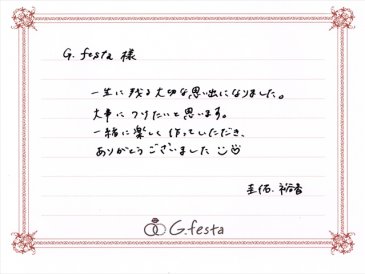 G. festa 様
一生に残る大切な思い出になりました。
大事につけたいと思います。
一緒に楽しく作っていただき、
ありがとうございました
圭佑. 裕香
G.festa